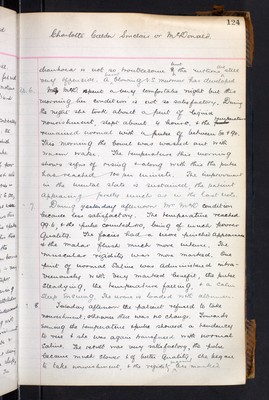 124
Charlotte Calder Sinclair or McDonald.
diarrhoea is not so troublesome & the motions
very offensive. A blowing V.S murmur has developed
Mrs McD. spent a very comfortable night but this
morning her condition is not so satisfactory. During
the night she took about a pint of liquid
nourishment, slept about 4 hours, & the temperature
remained normal with a pulse of between 80 & 90.
This morning the bowel was washed out with
warm water. The temperature this morning
shows signs of rising & along with this the pulse
has reached 100 per minute. The improvement
in the mental state is sustained, the patient
appearing
7. During yesterday afternoon Mrs McD's condition
became less satisfactory. The temperature reached
99.6, & the pulse counted 100, being of much poorer
quality. The facies had a more pinched appearance
& the malar flush much more intense. The
muscular rigidity was more marked. One
pint of normal saline was administered intra-
venously with very marked benefit, the pulse
steadying, the temperature falling, & a calm
sleep ensuing. The urine is loaded with albumen.
8. Tuesday afternoon the patient refused to take
nourishment, otherwise there was no change. Towards
evening the temperature & pulse showed a tendency
to rise & she was again transfused with normal
saline. The result was very satisfactory, the pulse
became much slower & of better quality, she began
to take nourishment, & the rigidity less marked